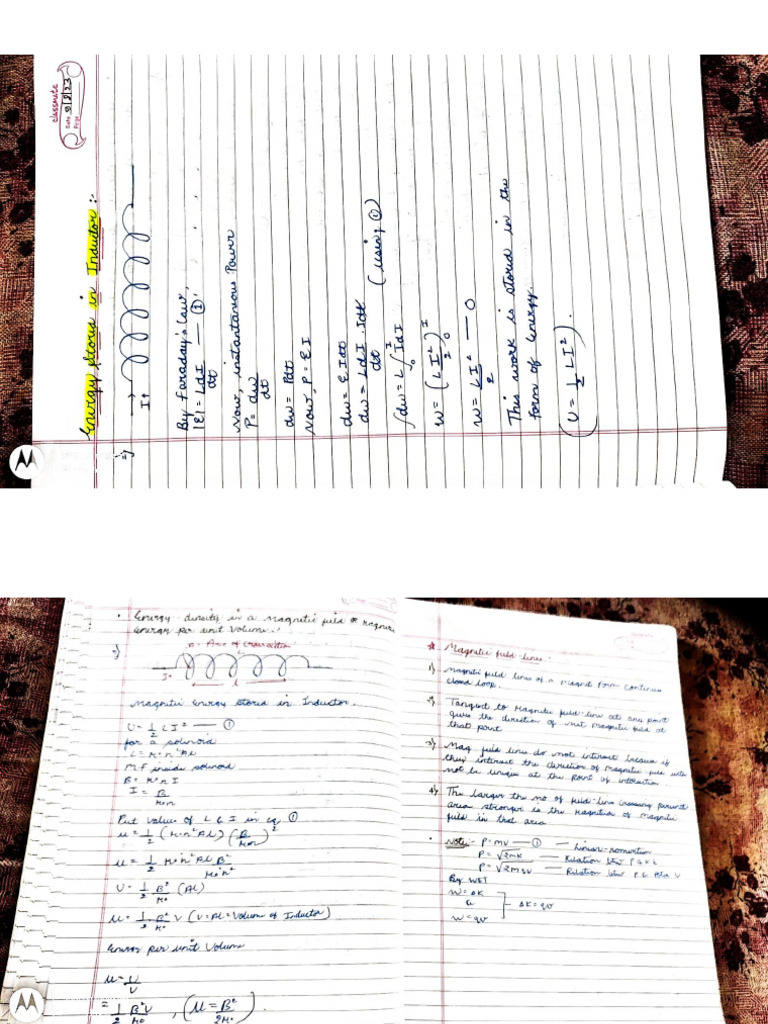 classmate
Date 9 9 23
Page
Energy stores in Inductor :-
→)
I↑
By Faraday's law,
|ε| = LdI — ①
dt
Now, instantaneous Power
P = dw
dt
dw = Pdt
Now, P = εI
dw = εIdt
dw = LdI . Idt (using ①)
dt
∫dw = L∫IdI
w = (LI²)
2
w = LI² — 0
2
This work is stored in the
form of energy.
(U = 1 LI²).
2
• Energy density in a magnetic field or magnetic
energy per unit Volume :-
A = Area of Cross section
I→
l
Magnetic energy stored in Inductor.
U = 1 LI² — ①
2
for a solenoid
L = μ₀n²Al
M F inside solenoid
B = μ₀nI
I = B
μ₀n
Put Values of L & I in eq ①
u = 1 (μ₀n²Al)(B)²
2 μ₀n
u = 1 μ₀n²Al B²
2 μ₀²n²
U = 1 B² (Al)
2 μ₀
u = 1 B² V (V = Al = Volume of Inductor)
2 μ₀
Energy per unit Volume
u = U
V
= 1 B²V , (u = B²).
2 μ₀ 2μ₀
* Magnetic field lines :-
1) Magnetic field lines of a magnet form continuous
closed loop.
2) Tangent to Magnetic field line at any point
gives the direction of net magnetic field at
that point
3) Mag field lines do not intersect because if
they intersect the direction of magnetic field will
not be unique at the point of intersection.
4) The larger the no of field line crossing per unit
area stronger is the magnitude of magnetic
field in that area.
• Note:- P = mv — ① — Linear momentum
P = √2mK — Relation b/w P & K.E
P = √2mqV — Relation b/w P & V
By WET
W = ΔK
ΔK = qV
W = qV